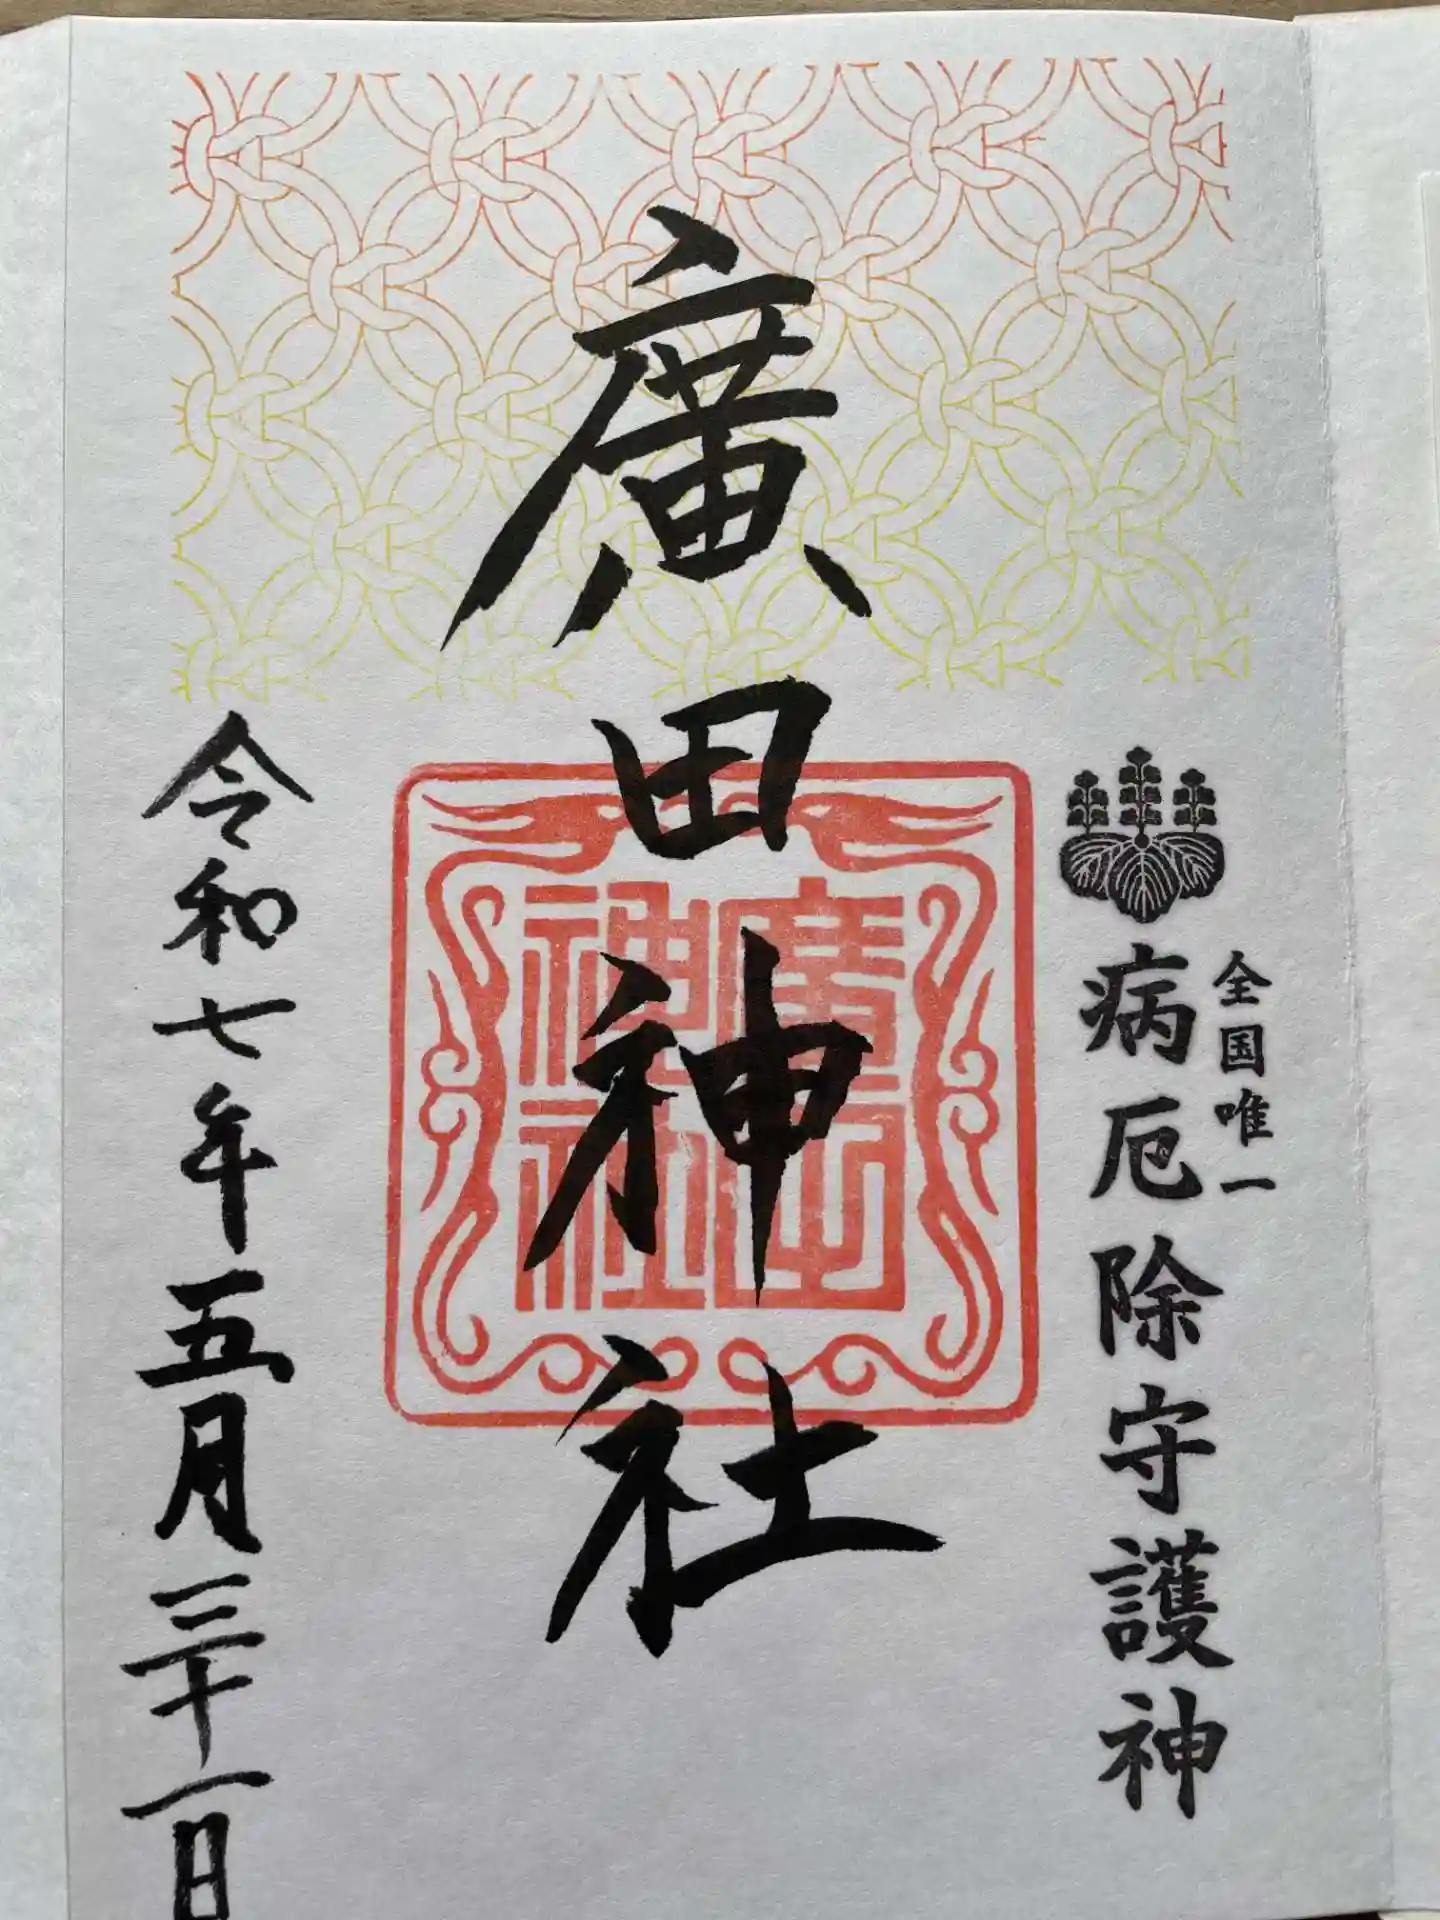 全国唯一
病厄除守護神
廣田神社
廣田神社
令和七年五月三十一日